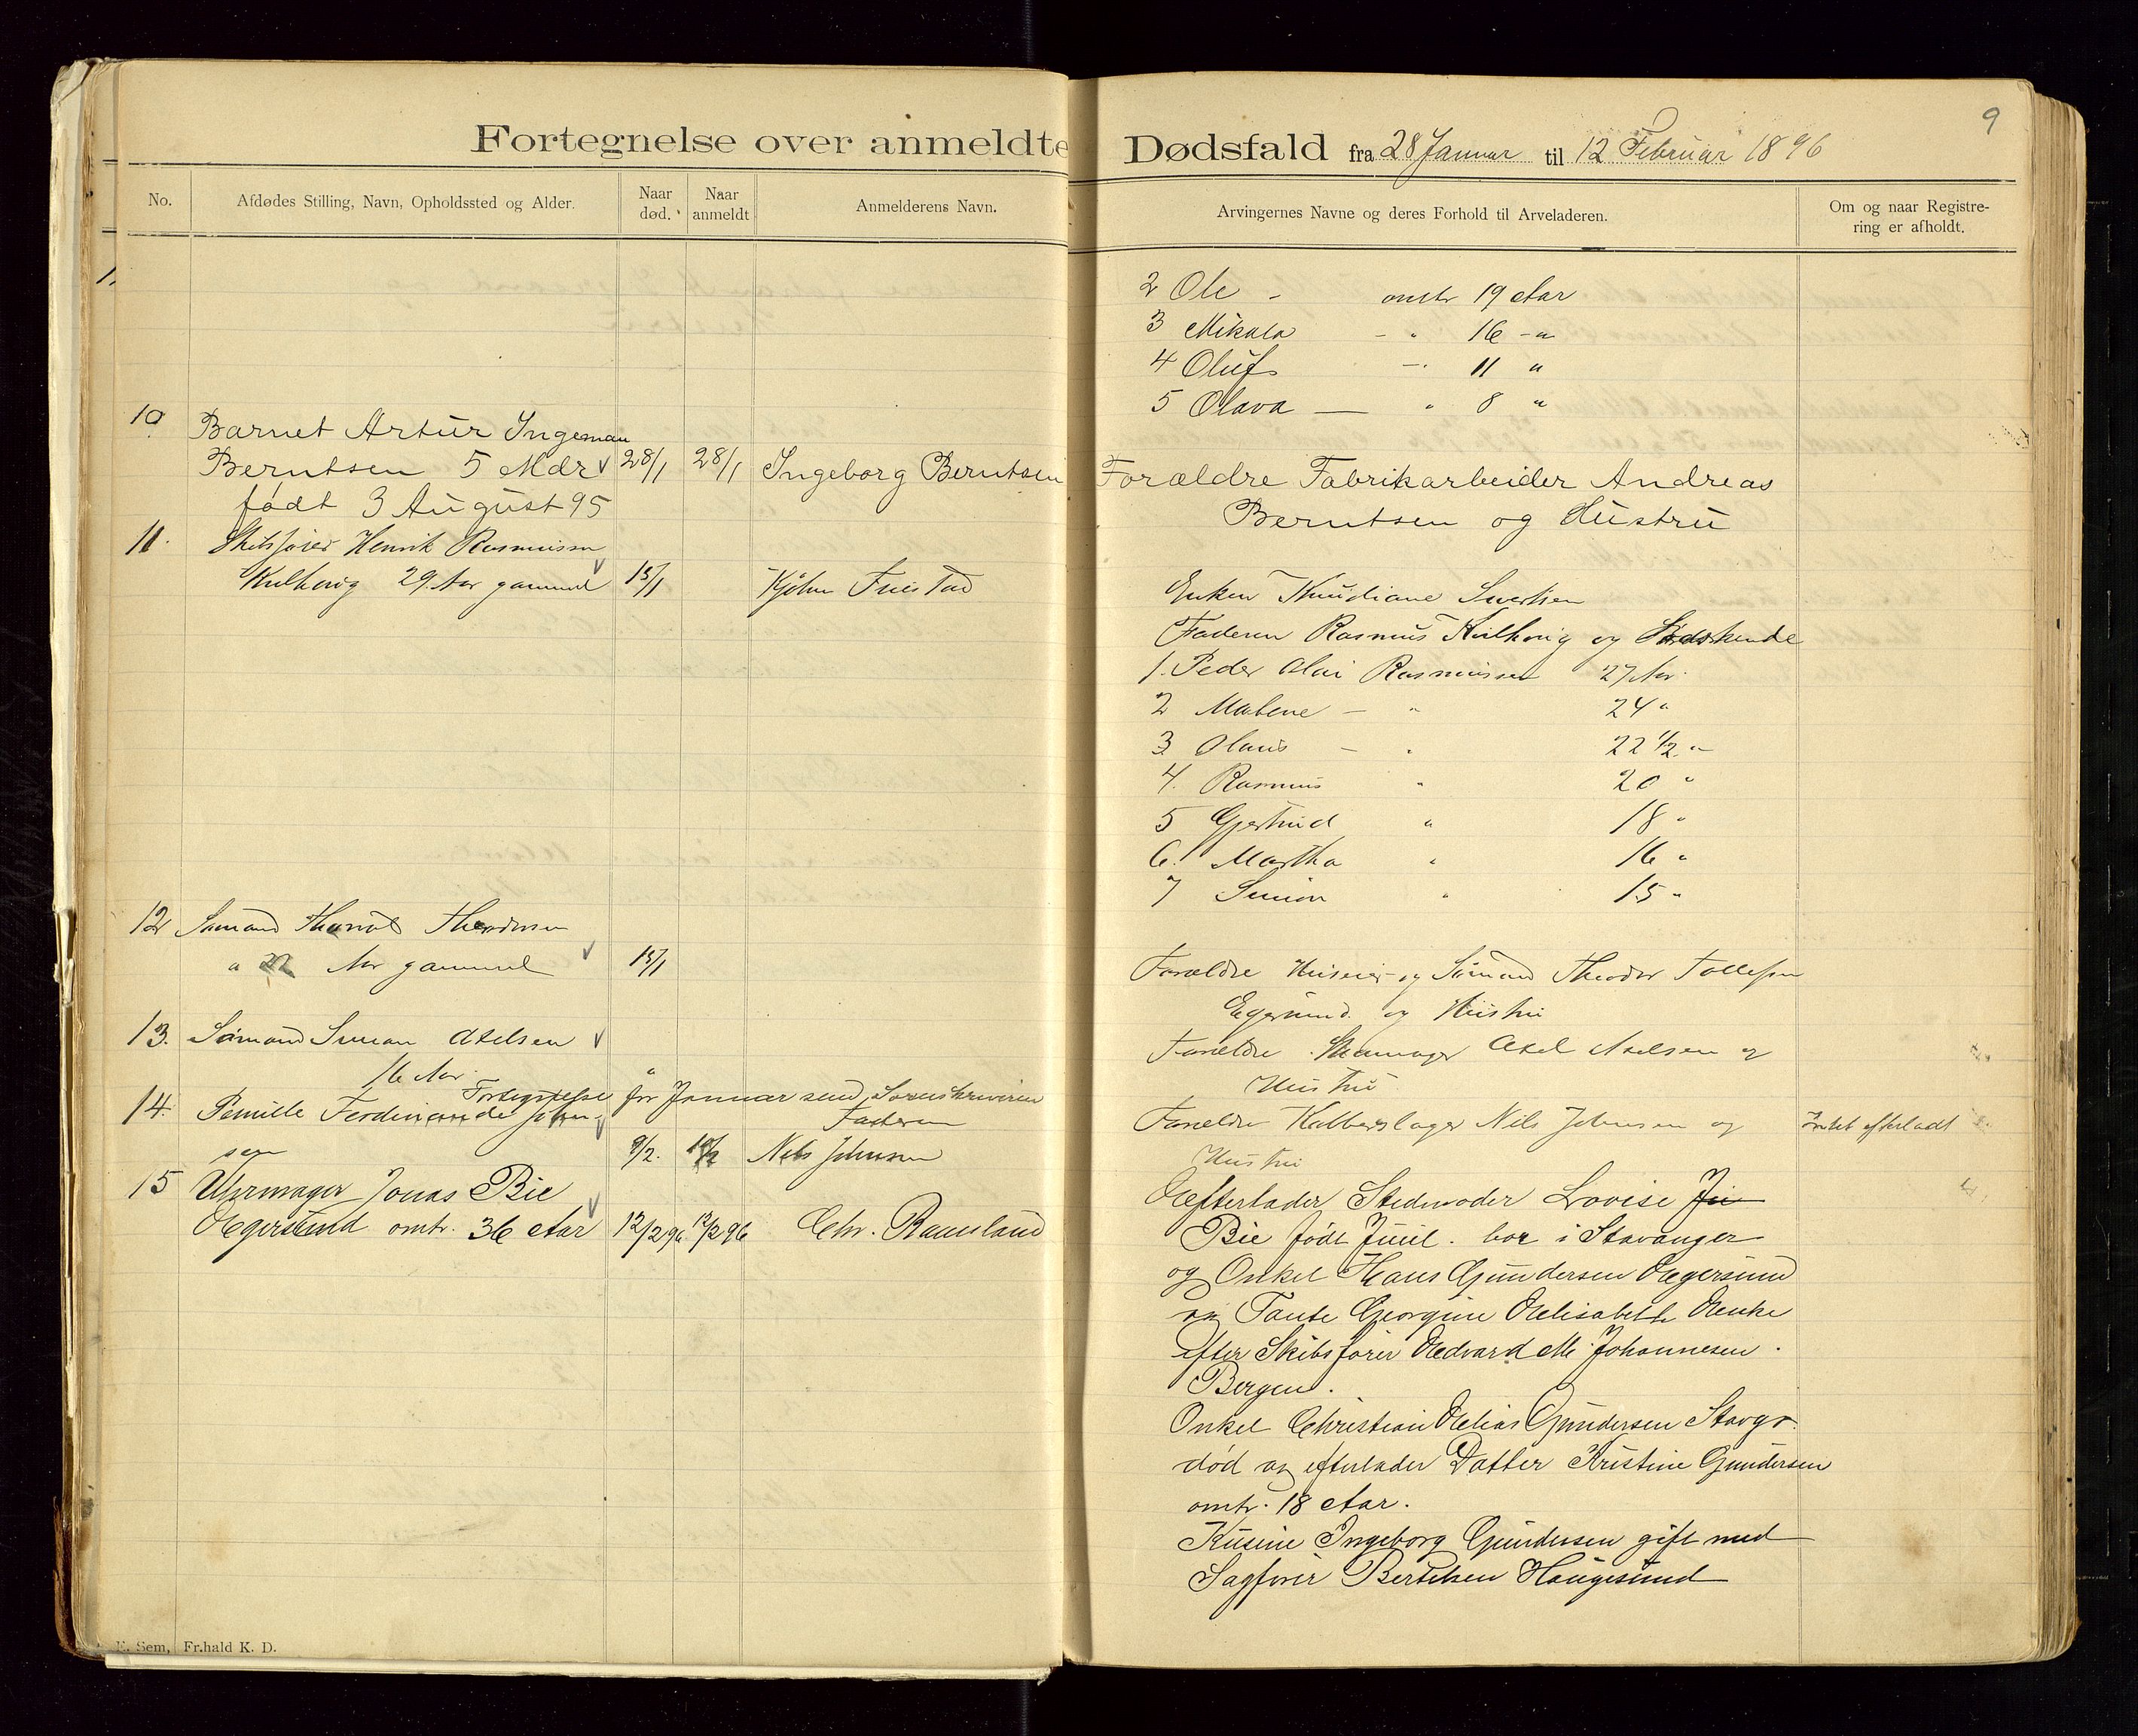 Fortegnelse over anmeldte Dødsfald fra 28 Januar til 12 Februar 1896
9
No.
Afdødes Stilling, Navn, Opholdssted og Alder.
Naar død.
Naar anmeldt
Anmelderens Navn.
Arvingernes Navne og deres Forhold til Arveladeren.
Om og naar Registre-
ring er afholdt.
2 Ole - omtr 19 Aar
3 Mikala - " 16 - "
4 Oluf - 11 "
5 Olava — " 8 "
10 Barnet Artur Ingeman
Berntsen 5 Mdr 28/1 28/1 Ingeborg Berntsen
født 3 August 95
Forældre Fabrikarbeider Andreas
Berntsen og Hustru
11. Skibsfører Henrik Rasmussen
29 Aar gammel 15/1
Enken
Faderen Rasmus og Sødskende
1. Peder Olai Rasmussen 27 Aar.
2 Malene - " 24 "
3 Olaus - " 22 1/2 "
4. Rasmus " 20 "
5 Gjertrud " 18 "
6. Martha " 16 "
7 Simon " 15 "
12 Sømand
" 22 Aar gammel 15/1
Forældre og Sømand Theodor Tollefsen
Egersund og Hustru
13. Sømand Simon Axelsen
16 Aar.
Forældre Axel Axelsen og
Hustru
Fortegnelse for Januar send Sorenskriveren
14. Pernille Ferdinande John-
sen 9/2. Faderen
Nils Johnsen
Forældre Nils Johnsen og
Hustru
Intet efterladt
15 Uhrmager Jonas Bie
Egersund omtr. 36 Aar 12/2 96 12/2 96 Chr. Ramsland
Efterlader Stedmoder Lovise
Bie født Juul. bor i Stavanger
og Onkel Hans Gundersen Egersund
og Tante Georgine Elisabeth Enke
efter Skibsfører Edvard M. Johannesen.
Bergen.
Onkel Christian Elias Gundersen Stavgr.
død og efterlader Datter Kristine Gundersen
omtr. 18 Aar.
Kusine Ingeborg Gundersen gift med
Sagfører Bertelsen Haugesund
E. Sem, Fr.hald K. D.